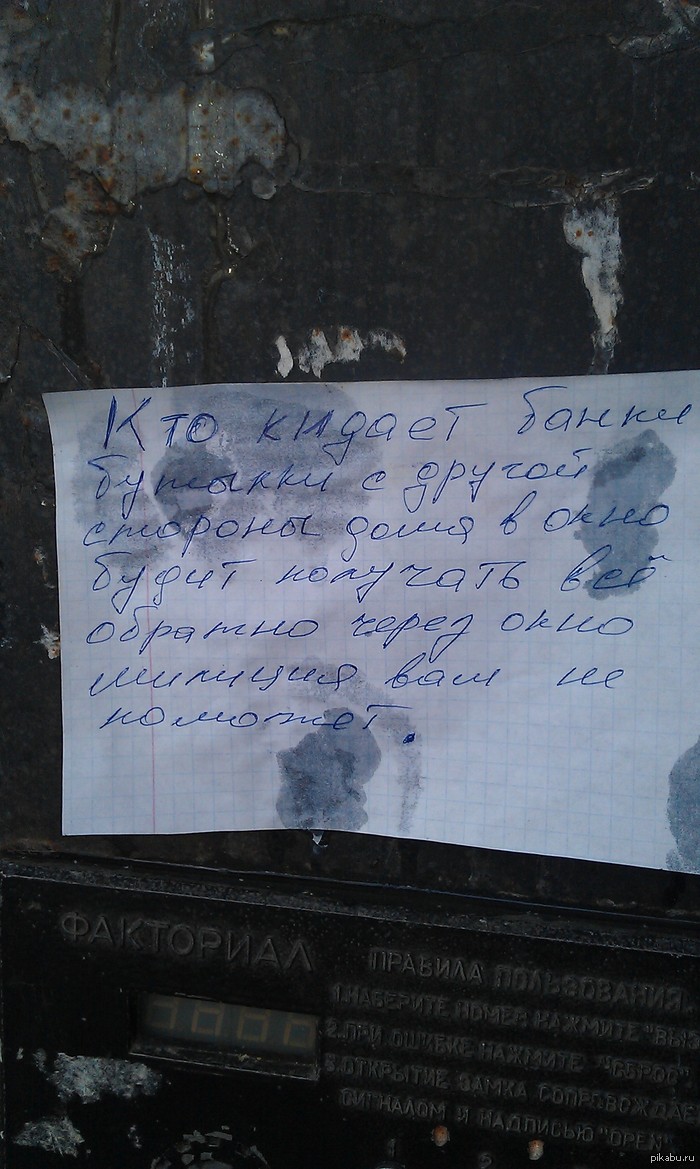 Кто кидает банки
бутылки с другой
стороны дома в окно
будит получать всё
обратно через окно
милиция вам не
поможет.
ФАКТОРИАЛ
ПРАВИЛА ПОЛЬЗОВАНИЯ
1.НАБЕРИТЕ НОМЕР НАЖМИТЕ "ВЫЗ
2.ПРИ ОШИБКЕ НАЖМИТЕ "СБРОС"
3.ОТКРЫТИЕ ЗАМКА СОПРОВОЖДАЕ
СИГНАЛОМ И НАДПИСЬЮ "OPEN"
pikabu.ru